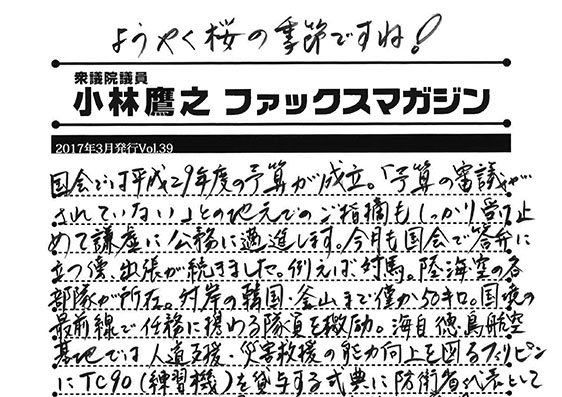 ようやく桜の季節ですね!
衆議院議員
小林鷹之 ファックスマガジン
2017年3月発行Vol.39
国会では平成29年度の予算が成立。「予算の審議が
されていない」との地元でのご指摘もしっかり受け止
めて謙虚に公務に邁進します。今月も国会で答弁に
立つ傍、出張が続きました。例えば対馬。陸海空の各
部隊が所在。対岸の韓国・釜山まで僅か50キロ。国境の
最前線で任務に携わる隊員を激励。海自徳島航空
基地では人道支援・災害救援の能力向上を図るフィリピン
にTC90(練習機)を貸与する式典に防衛省代表として